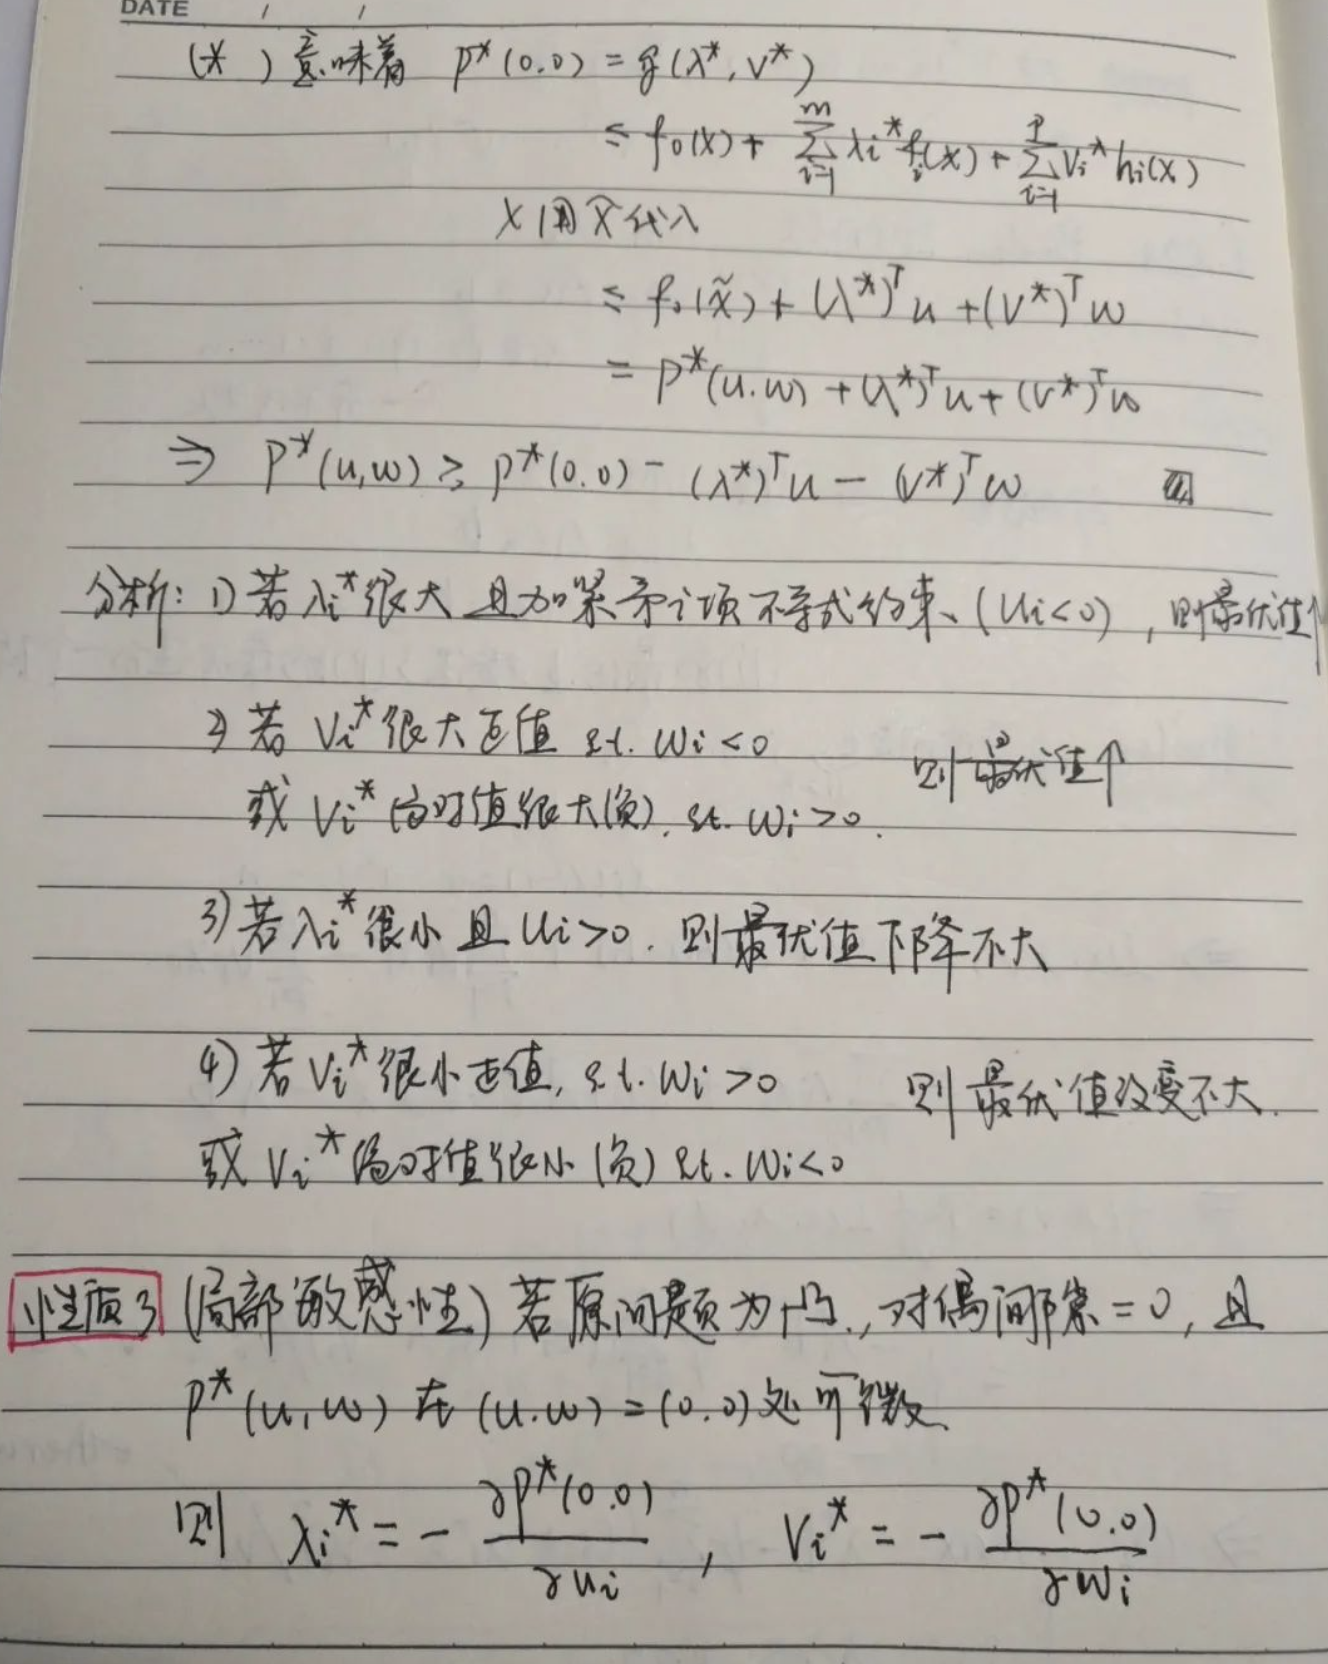 DATE / /
(*) 意味着 p*(0,0) = g(λ*, v*)
≤ f₀(x) + ∑ᵢ₌₁ᵐ λᵢ* fᵢ(x) + ∑ᵢ₌₁ᵖ vᵢ* hᵢ(x)
x 用 x̃ 代入
≤ f₀(x̃) + (λ*)ᵀu + (v*)ᵀw
= p*(u.w) + (λ*)ᵀu + (v*)ᵀw
⇒ p*(u,w) ≥ p*(0.0) - (λ*)ᵀu - (v*)ᵀw
分析: 1) 若 λᵢ* 很大 且加紧第i项不等式约束、(uᵢ<0), 则最优值↑
2) 若 vᵢ* 很大正值 s.t. wᵢ<0 则最优值↑
或 vᵢ* 绝对值很大(负). s.t. wᵢ>0.
3) 若 λᵢ* 很小 且 uᵢ>0. 则最优值下降不大
4) 若 vᵢ* 很小正值, s.t. wᵢ>0 则最优值改变不大.
或 vᵢ* 绝对值很小(负) s.t. wᵢ<0
性质3 (局部敏感性) 若原问题为凸, 对偶间隙=0, 且
p*(u,w) 在 (u.w)=(0.0) 处可微
则 λᵢ* = - ∂p*(0.0)/∂uᵢ , vᵢ* = - ∂p*(0.0)/∂wᵢ